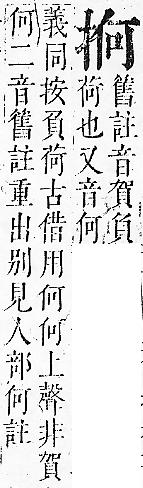 抲舊註音賀負
荷也又音何
義同按負荷古借用何何上聲非賀
何二音舊註重出别見人部何註